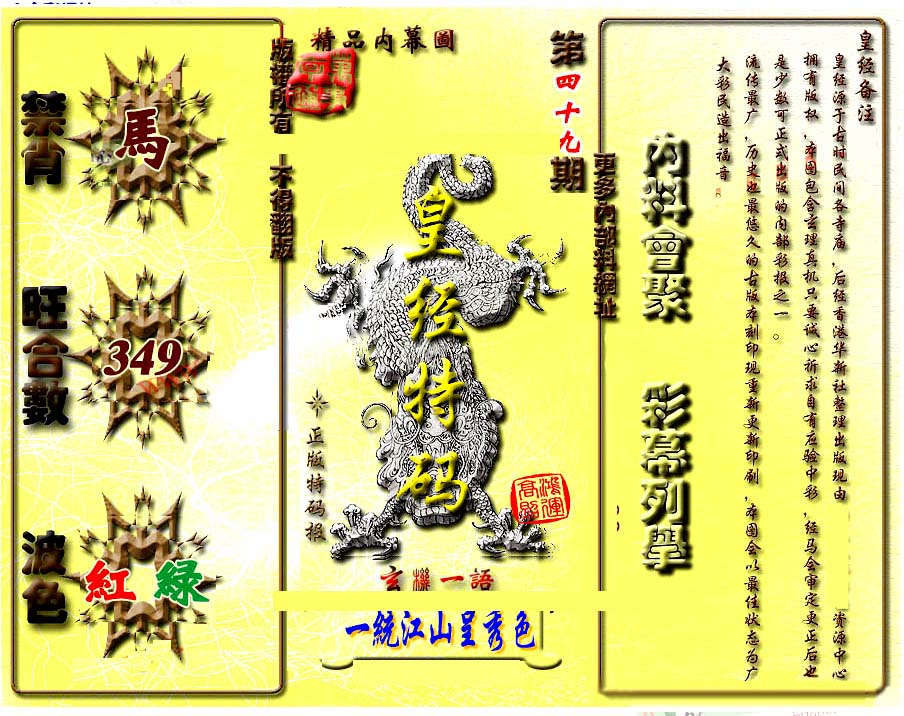 精品内幕圖
第四十九期
版權所有 不得翻版
禁肖
馬
旺合數
349
波色
紅 綠
皇经特码
正版特码报
鴻運高照
玄機一語
一統江山呈秀色
更多内部料網址
内料會聚 彩幕列舉
皇经备注
皇经源于古时民间各寺庙，后经香港华新社整理出版现由 资源中心
拥有版权，本图包含玄理真机只要诚心祈求自有应验中彩，经马会审定更正后也
是少数可正式出版的内部彩报之一。
流传最广，历史也最悠久的古版本刻印现重新更新印刷，本图会以最佳状态为广
大彩民造出福音